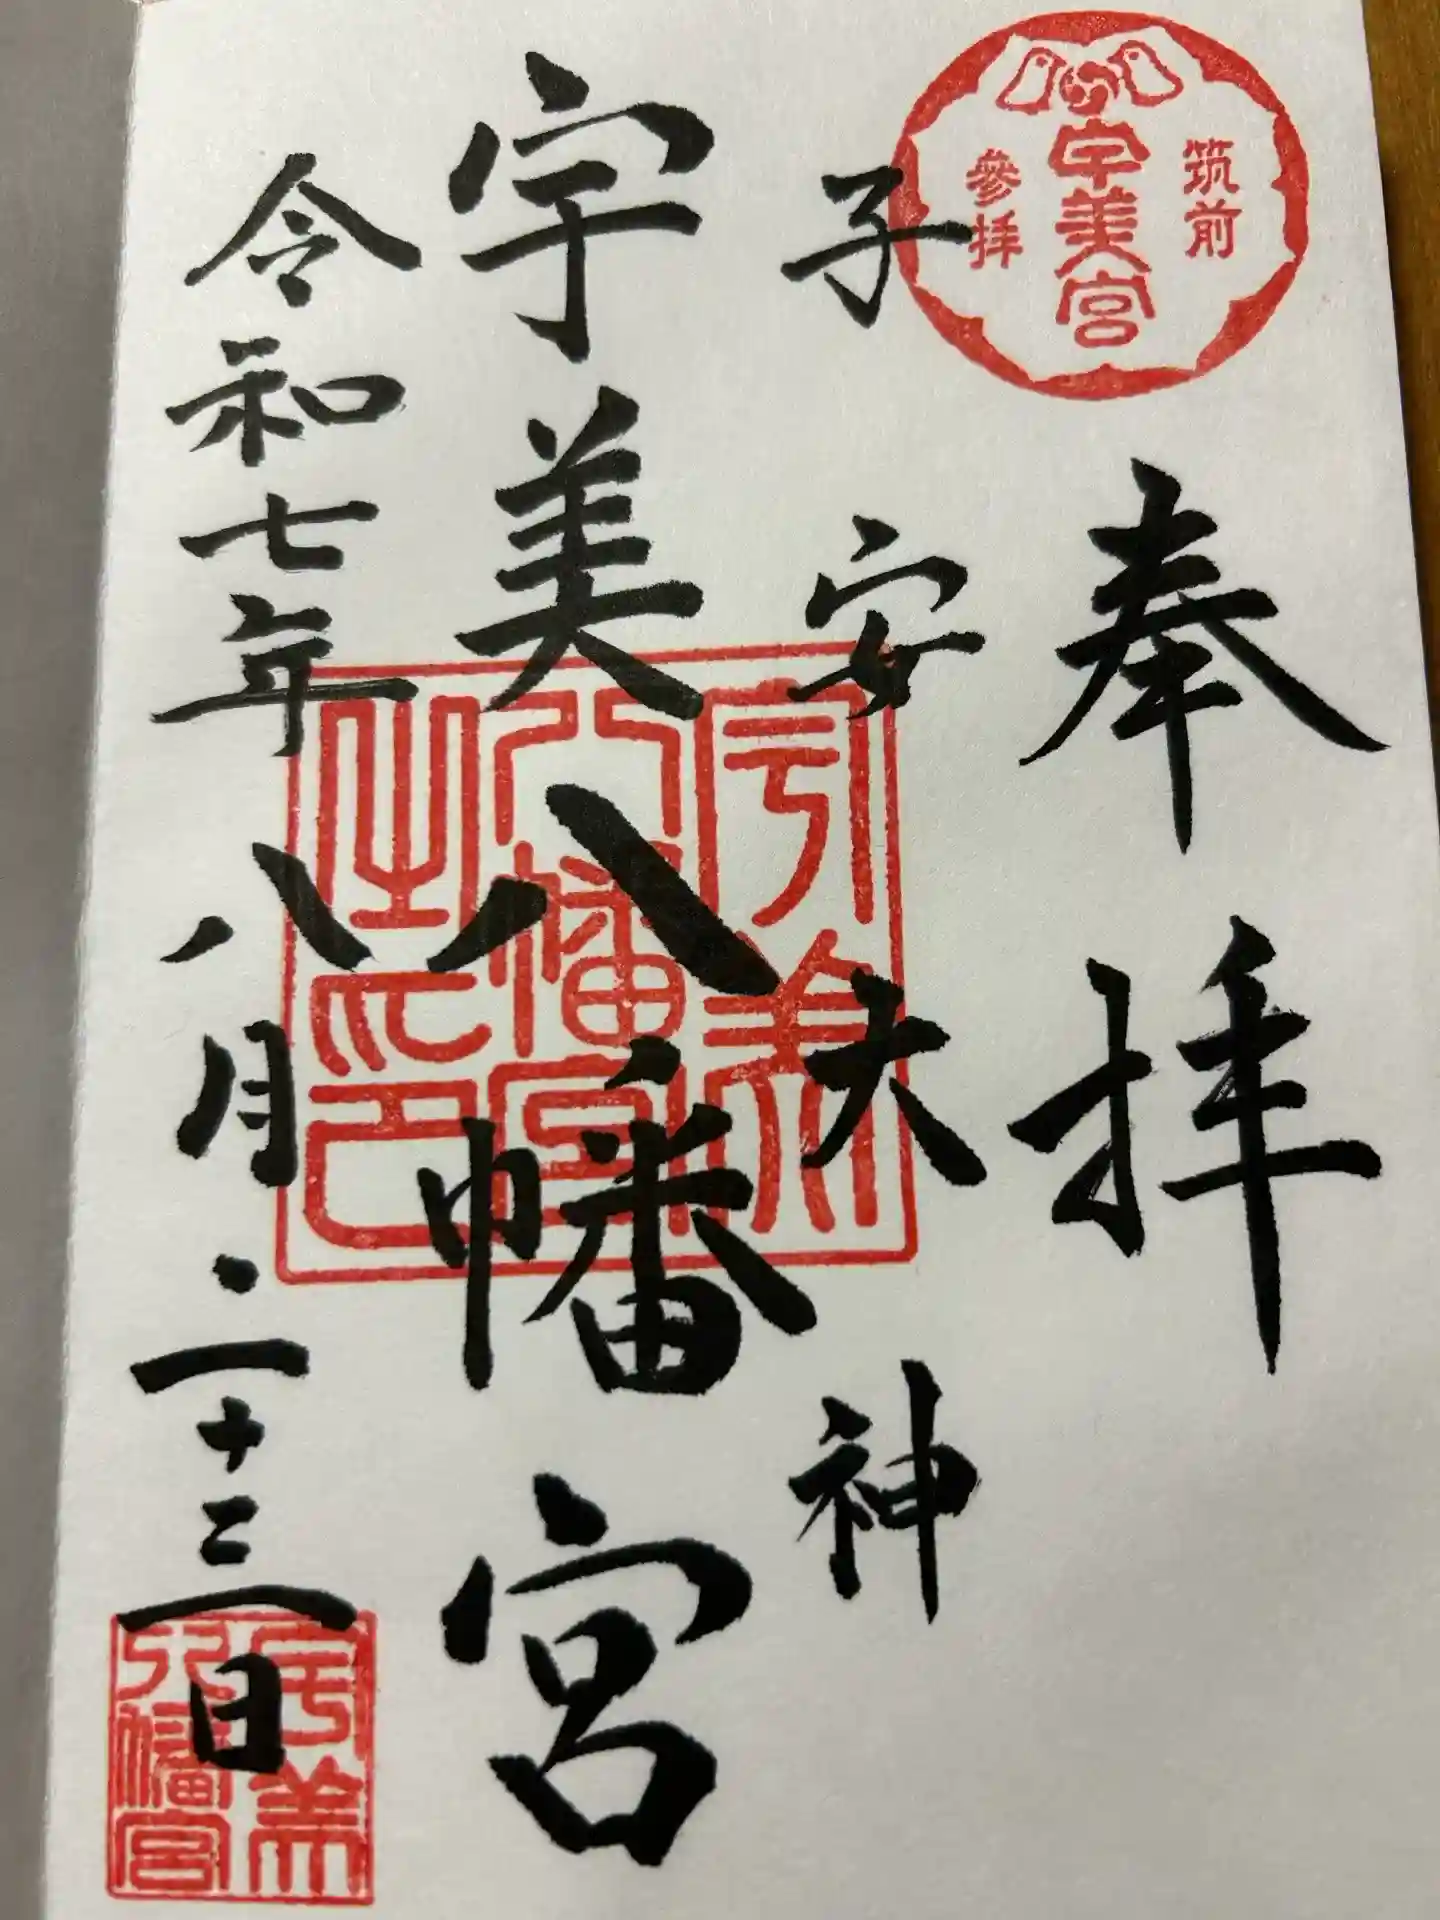 筑前
宇美宮
參拝
奉拝
子安大神
宇美八幡宮
宇美
八幡宮
之印
令和七年八月二十三日
宇美
八幡宮